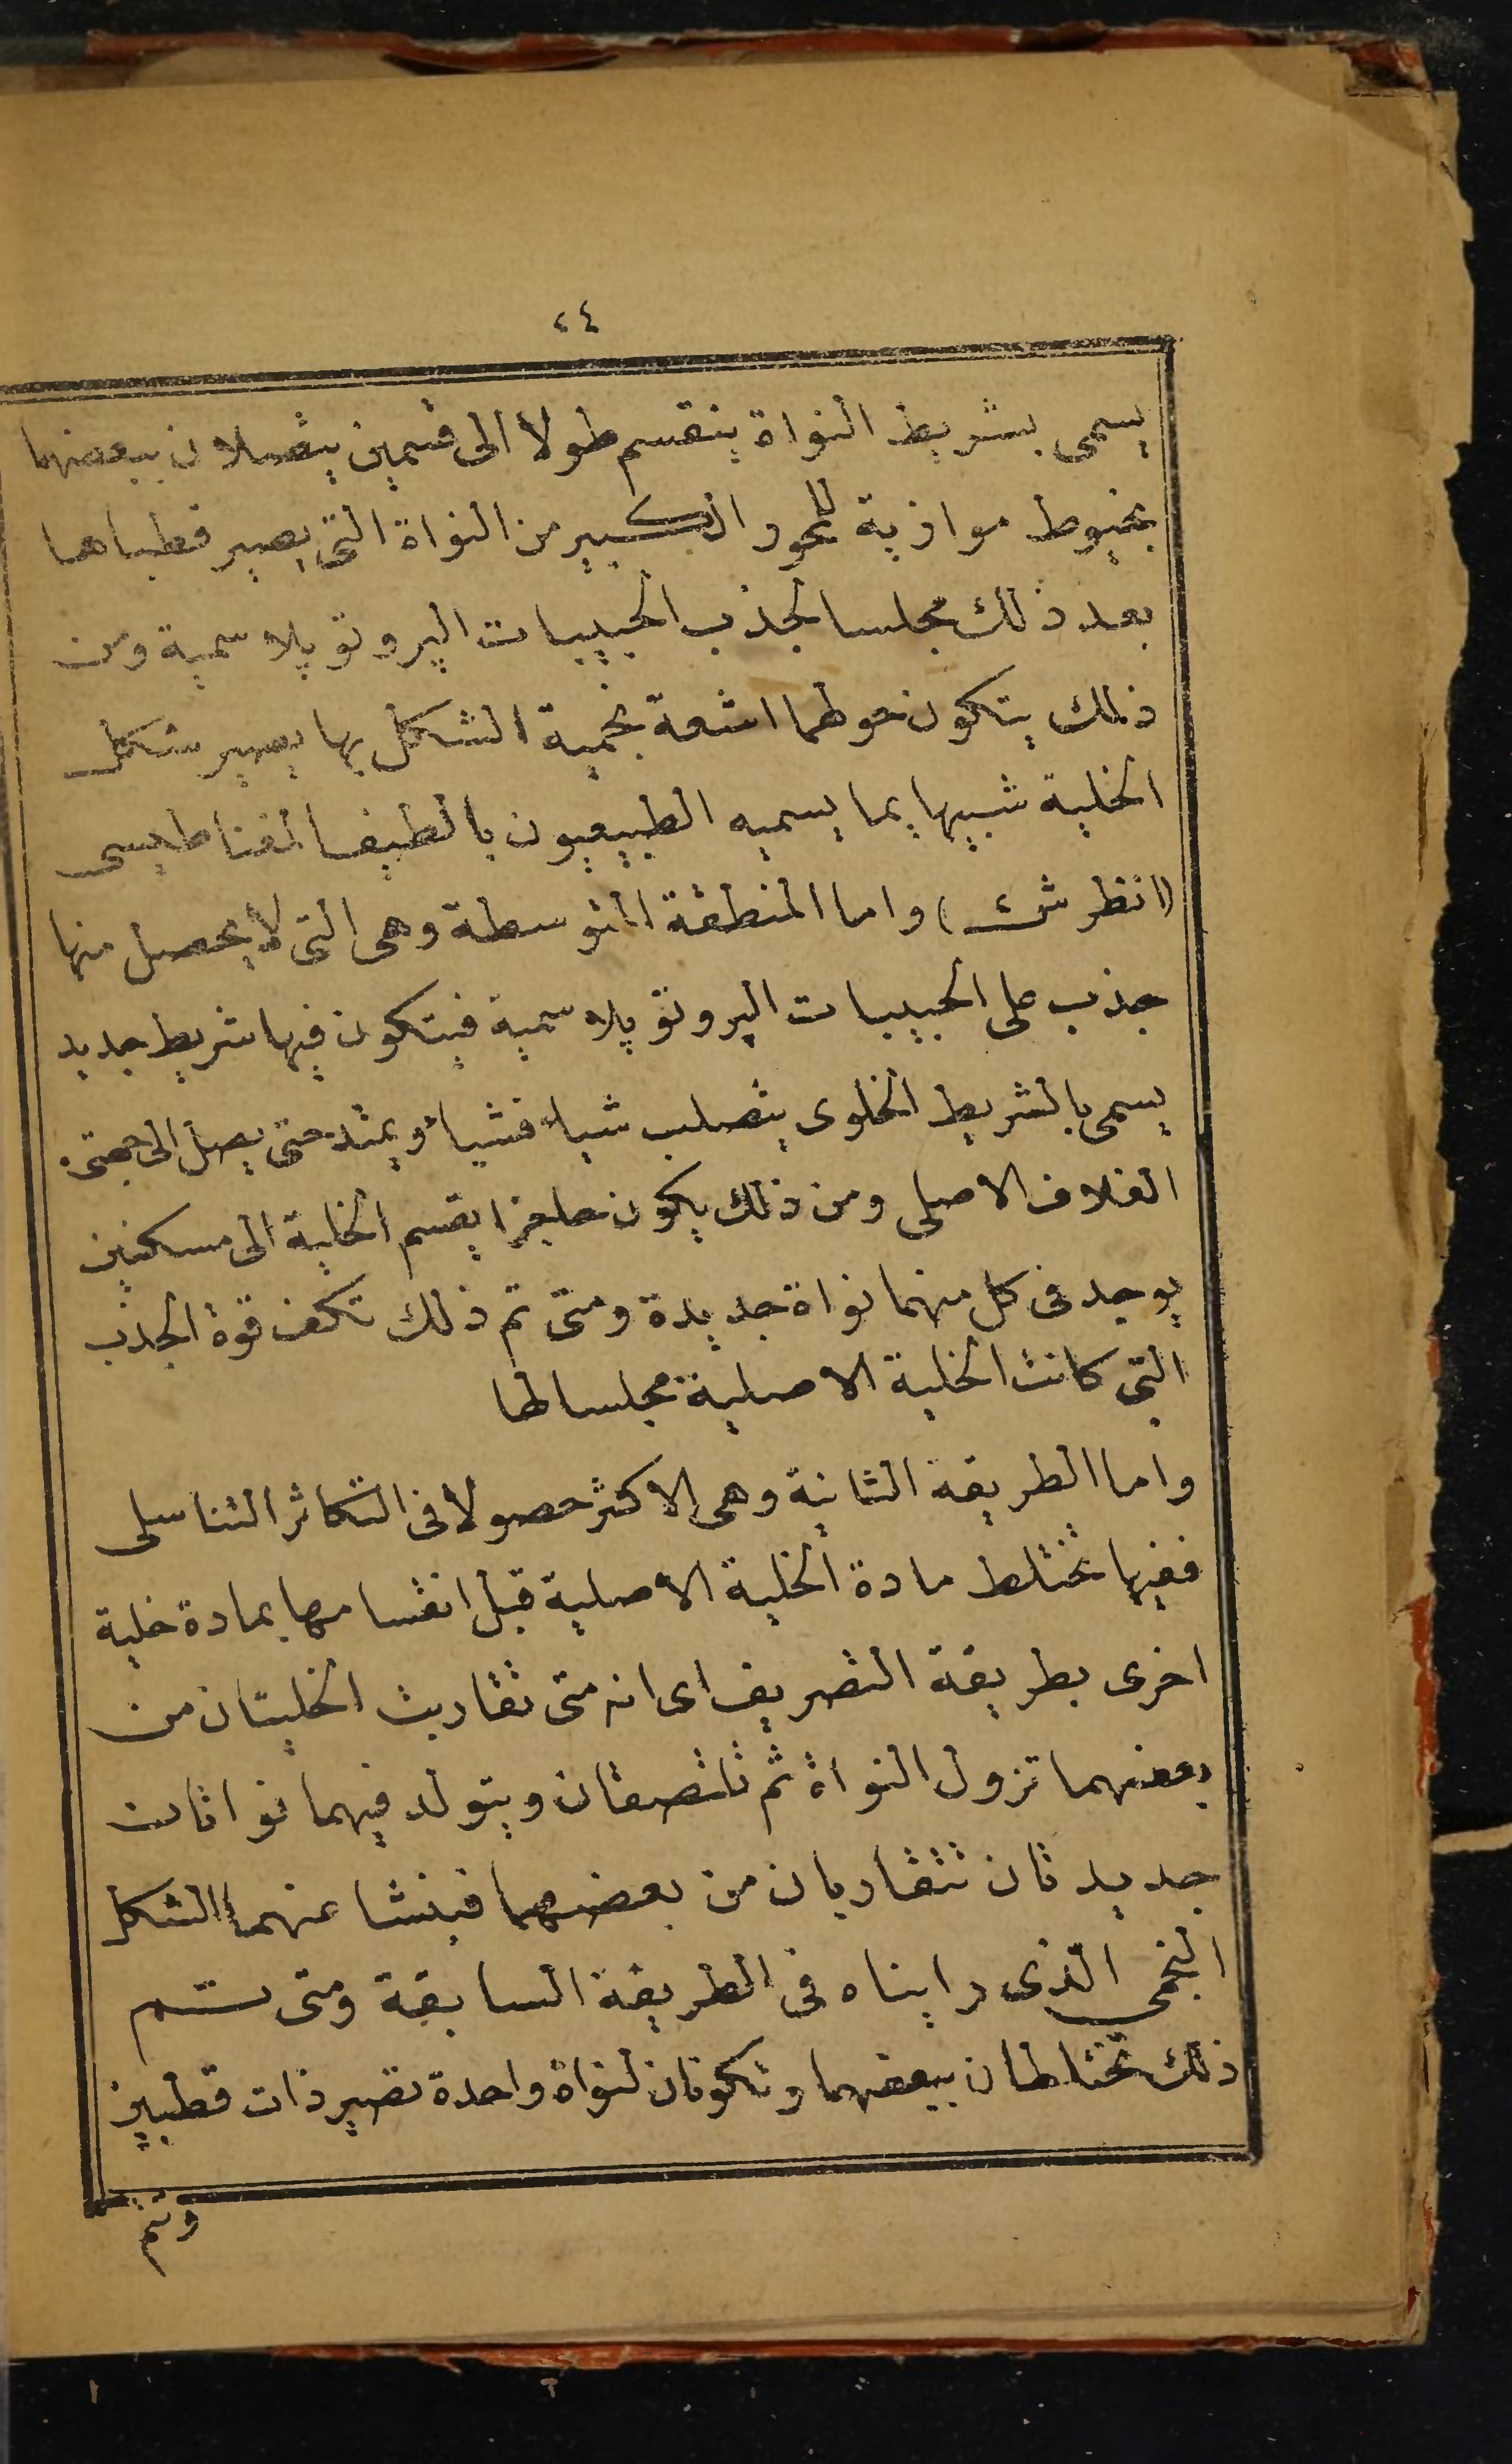 ٢٤
يسمى بشريط النواة ينقسم طولا الى قسمين يتصلان ببعضهما
بخيوط موازية للمحور الكبير من النواة التى يصير قطباها
بعد ذلك مجلسا لجذب الحبيبات البروتوپلاسمية ومن
ذلك يتكون حولهما اشعة نجمية الشكل بها يصير شكل
الخلية شبيها بما يسميه الطبيعيون بالطيف المغناطيسى
(انظر ش) واما المنطقة المتوسطة وهى التى لا يحصل منها
جذب على الحبيبات البروتوپلاسمية فيتكون فيها شريط جديد
يسمى بالشريط الخلوى يتصلب شيأ فشيأ ويمتد حتى يصل الى جهتى
الغلاف الاصلى ومن ذلك يكون حاجزا يقسم الخلية الى مسكنين
يوجد فى كل منهما نواة جديدة ومتى تم ذلك تكف قوة الجذب
التى كانت الخلية الاصلية مجلسا لها
واما الطريقة الثانية وهى الاكثر حصولا فى التكاثر التناسلى
ففيها تختلط مادة الخلية الاصلية قبل انقسامها بمادة خلية
اخرى بطريقة التصريف اى انه متى تقاربت الخليتان من
بعضهما تزول النواة ثم تلتصقان ويتولد فيهما نواتان
جديدتان تتقاربان من بعضهما فينشا عنهما الشكل
النجمى الذى رايناه فى الطريقة السابقة ومتى تم
ذلك تختلطان ببعضهما وتكونان لنواة واحدة تصير ذات قطبين
وتم